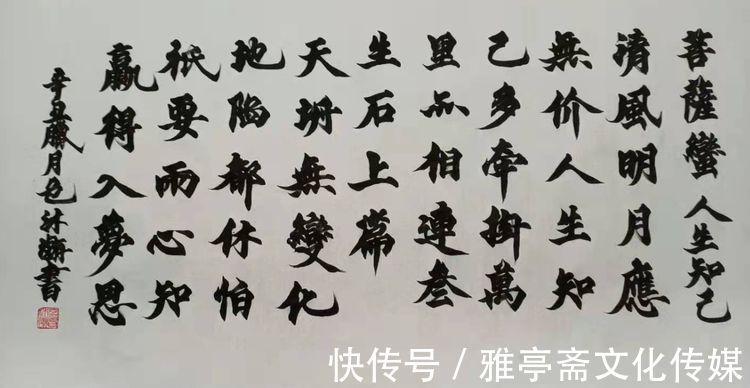 菩薩蠻 人生知己
清風明月應
無价人生知
己多牽掛萬
里亦相連叁
生石上篇
天坍無變化
地陷都休怕
祇要两心知
贏得入夢思
辛丑臘月 書
快传号 / 雅亭斋文化传媒